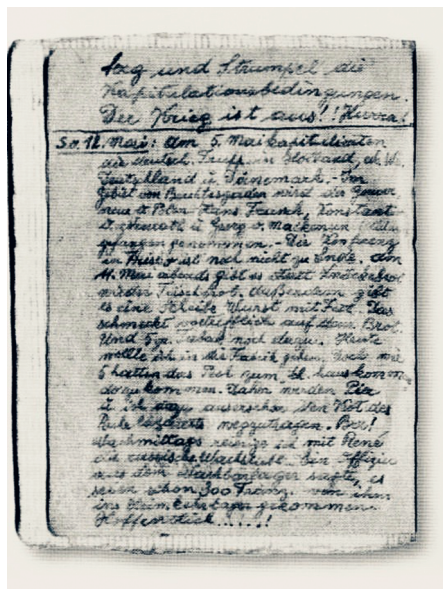 berg und Strumpel die
Kapitulationsbedingungen.
Der Krieg ist aus!! Hurra!
So. 12. Mai: Am 5. Mai kapitulierten
die deutsch. Trupp. in Holland,
Deutschland u. Dänemark. - Im
Gebiet von Berchtesgaden wird der Gouver-
neur v. Polen Hans Frank,
u. Neurath u. Georg v. Mackensen
gefangen genommen. - Die Konferenz
in Frisco ist noch nicht zu Ende. Am
11. Mai abends gibt es statt Knäckebrot
wieder Frischbrot. Außerdem gibt
es eine Scheibe Wurst mit Fett. Das
schmeckt vortrefflich auf dem Brot.
Und 5 gr. Tabak noch dazu. Heute
wollte ich in die Fabrik gehen. Doch wir
5 hatten das Pech zum
kommen. Daher wurden Piet
u. ich dazu ausersehen den Kot des
Ruhr Lazaretts wegzutragen. Brr!
Nachmittags reinige ich mit René
die russische Wachstube. Ein Offizier
aus dem Nachbarlager sagte, es
seien schon 300 Franz. von ihm
ins Heimkehrlager gekommen.
Hoffentlich......!